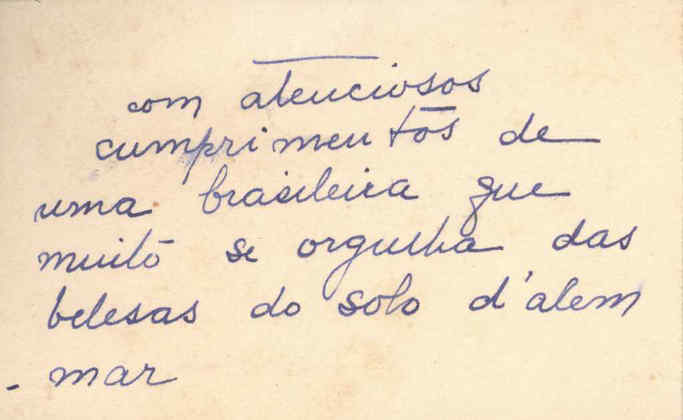 com atenciosos
cumprimentos de
uma brasileira que
muito se orgulha das
belesas do solo d'alem
- mar